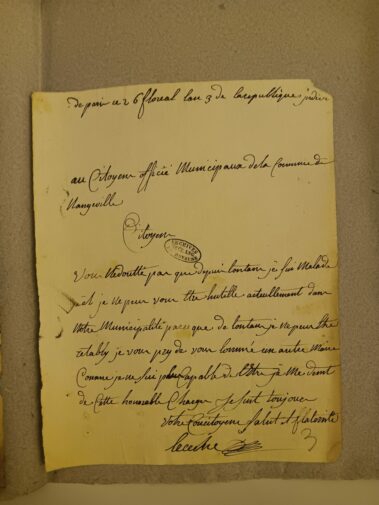 de pari ce 26 floreal lan 3 de larepublique
au Citoyen officié Municipaux de la Commune de
Nangeville
Citoyen
ARCHIVES
Vou Redoutté pas que depuis lontam je sui Malade
et je ne peu vous etre hutille actuellement dans
votre Municipalité parce que de lontam je ne peu etre
retably je vou pry de vour nommé un autre Maire
Comme je ne sui plus Capable de l'être je me demet
de Cette honorable Charge je suit toujour
votre Concitoyene Salut et
3